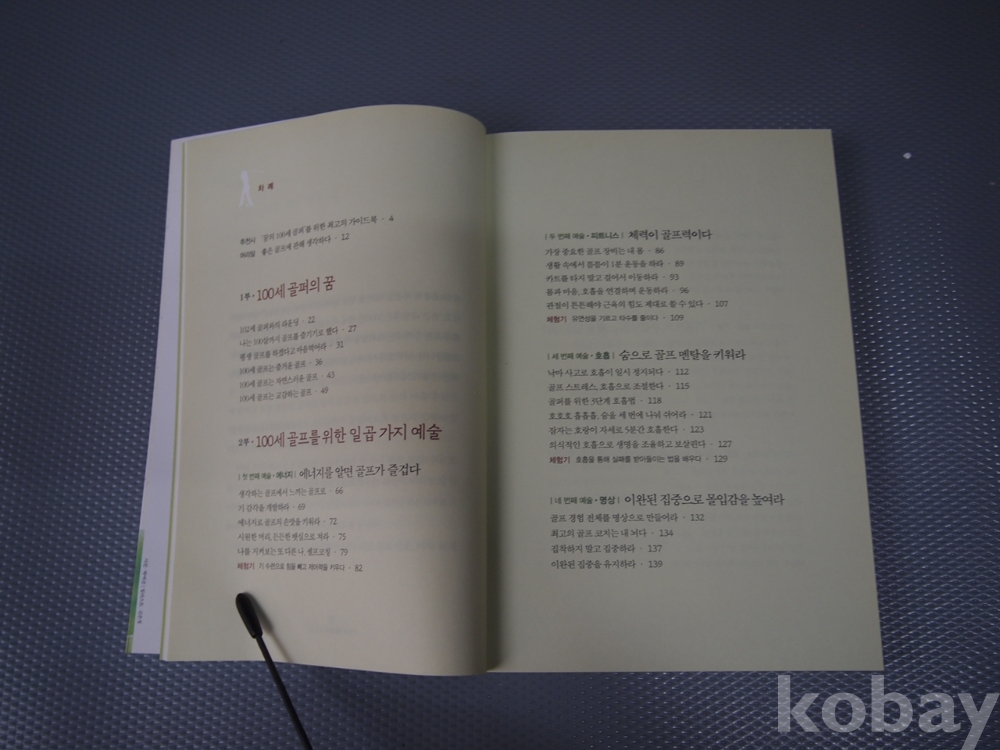 차 례
추천사 '꿈의 100세 골퍼'를 위한 최고의 가이드북 · 4
머리말 좋은 골프에 관해 생각하다 · 12
1부 · 100세 골퍼의 꿈
102세 골퍼와의 라운딩 · 22
나는 100살까지 골프를 즐기기로 했다 · 27
평생 골프를 하겠다고 마음먹어라 · 31
100세 골프는 즐거운 골프 · 36
100세 골프는 자연스러운 골프 · 43
100세 골프는 교감하는 골프 · 49
2부 · 100세 골프를 위한 일곱 가지 예술
| 첫 번째 예술 · 에너지 | 에너지를 알면 골프가 즐겁다
생각하는 골프에서 느끼는 골프로 · 66
기 감각을 개발하라 · 69
에너지로 골프의 손맛을 키워라 · 72
시원한 거리, 든든한 뱃심으로 쳐라 · 75
나를 지켜보는 또 다른 나, 셀프코칭 · 79
체험기 기 수련으로 힘을 빼고 제어력을 키우다 · 82
| 두 번째 예술 · 피트니스 | 체력이 골프력이다
가장 중요한 골프 장비는 내 몸 · 86
생활 속에서 틈틈이 1분 운동을 하라 · 89
카트를 타지 말고 걸어서 이동하라 · 93
몸과 마음, 호흡을 연결하며 운동하라 · 96
관절이 튼튼해야 근육의 힘도 제대로 쓸 수 있다 · 107
체험기 유연성을 기르고 타수를 줄이다 · 109
| 세 번째 예술 · 호흡 | 숨으로 골프 멘탈을 키워라
낙마 사고로 호흡이 일시 정지되다 · 112
골프 스트레스, 호흡으로 조절한다 · 115
골퍼를 위한 3단계 호흡법 · 118
호호호 흡흡흡, 숨을 세 번에 나눠 쉬어라 · 121
잠자는 호랑이 자세로 5분간 호흡한다 · 123
의식적인 호흡으로 생명을 조율하고 보살핀다 · 127
체험기 호흡을 통해 실패를 받아들이는 법을 배우다 · 129
| 네 번째 예술 · 명상 | 이완된 집중으로 몰입감을 높여라
골프 경험 전체를 명상으로 만들어라 · 132
최고의 골프 코치는 내 뇌다 · 134
집착하지 말고 집중하라 · 137
이완된 집중을 유지하라 · 139
kobay